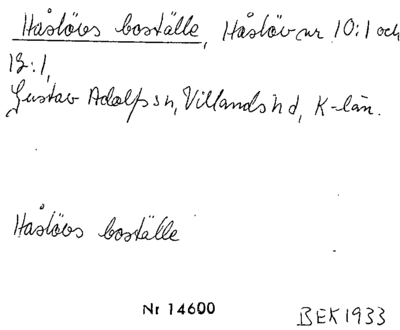 Håslövs boställe, Håslöv nr 10:1 och
13:1,
Gustav Adolfs sn, Villands hd, K-län.
Håslövs boställe
Nr 14600
BEK1933